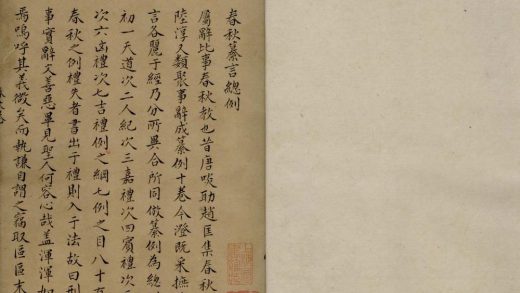 春秋纂言總例
屬辭比事春秋教也昔唐啖助趙匡集春秋
陸淳又類聚事辭成纂例十卷今澄既采摭
言各麗于經乃分所異合所同倣纂例為總
初一天道次二人紀次三嘉禮次四賓禮次
次六凶禮次七吉禮例之綱七例之目八十有
春秋之例禮失者書出于禮則入于法故曰刑
事實辭文善惡畢見聖人何容心哉蓋渾渾如
焉嗚呼其義微矣而執謙自謂之竊取區區末